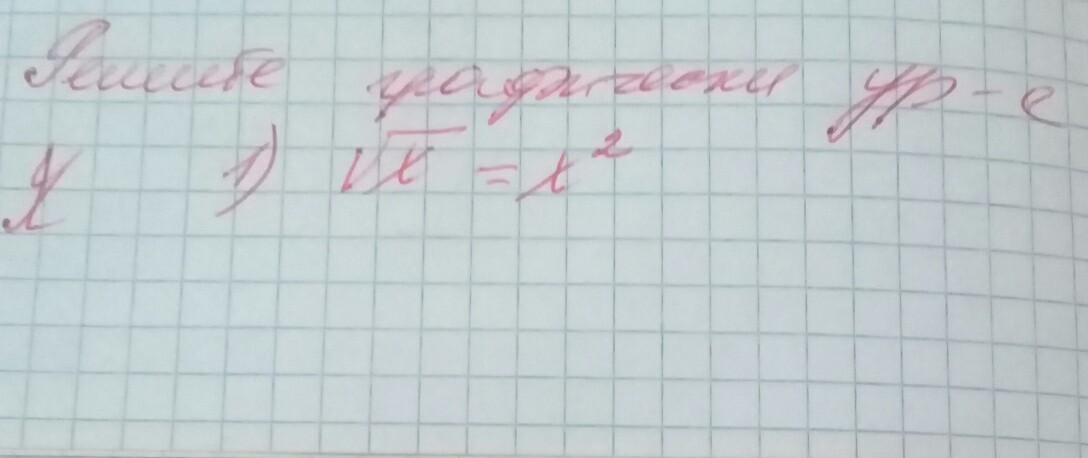 Решите графически ур-е
1) √x = x²